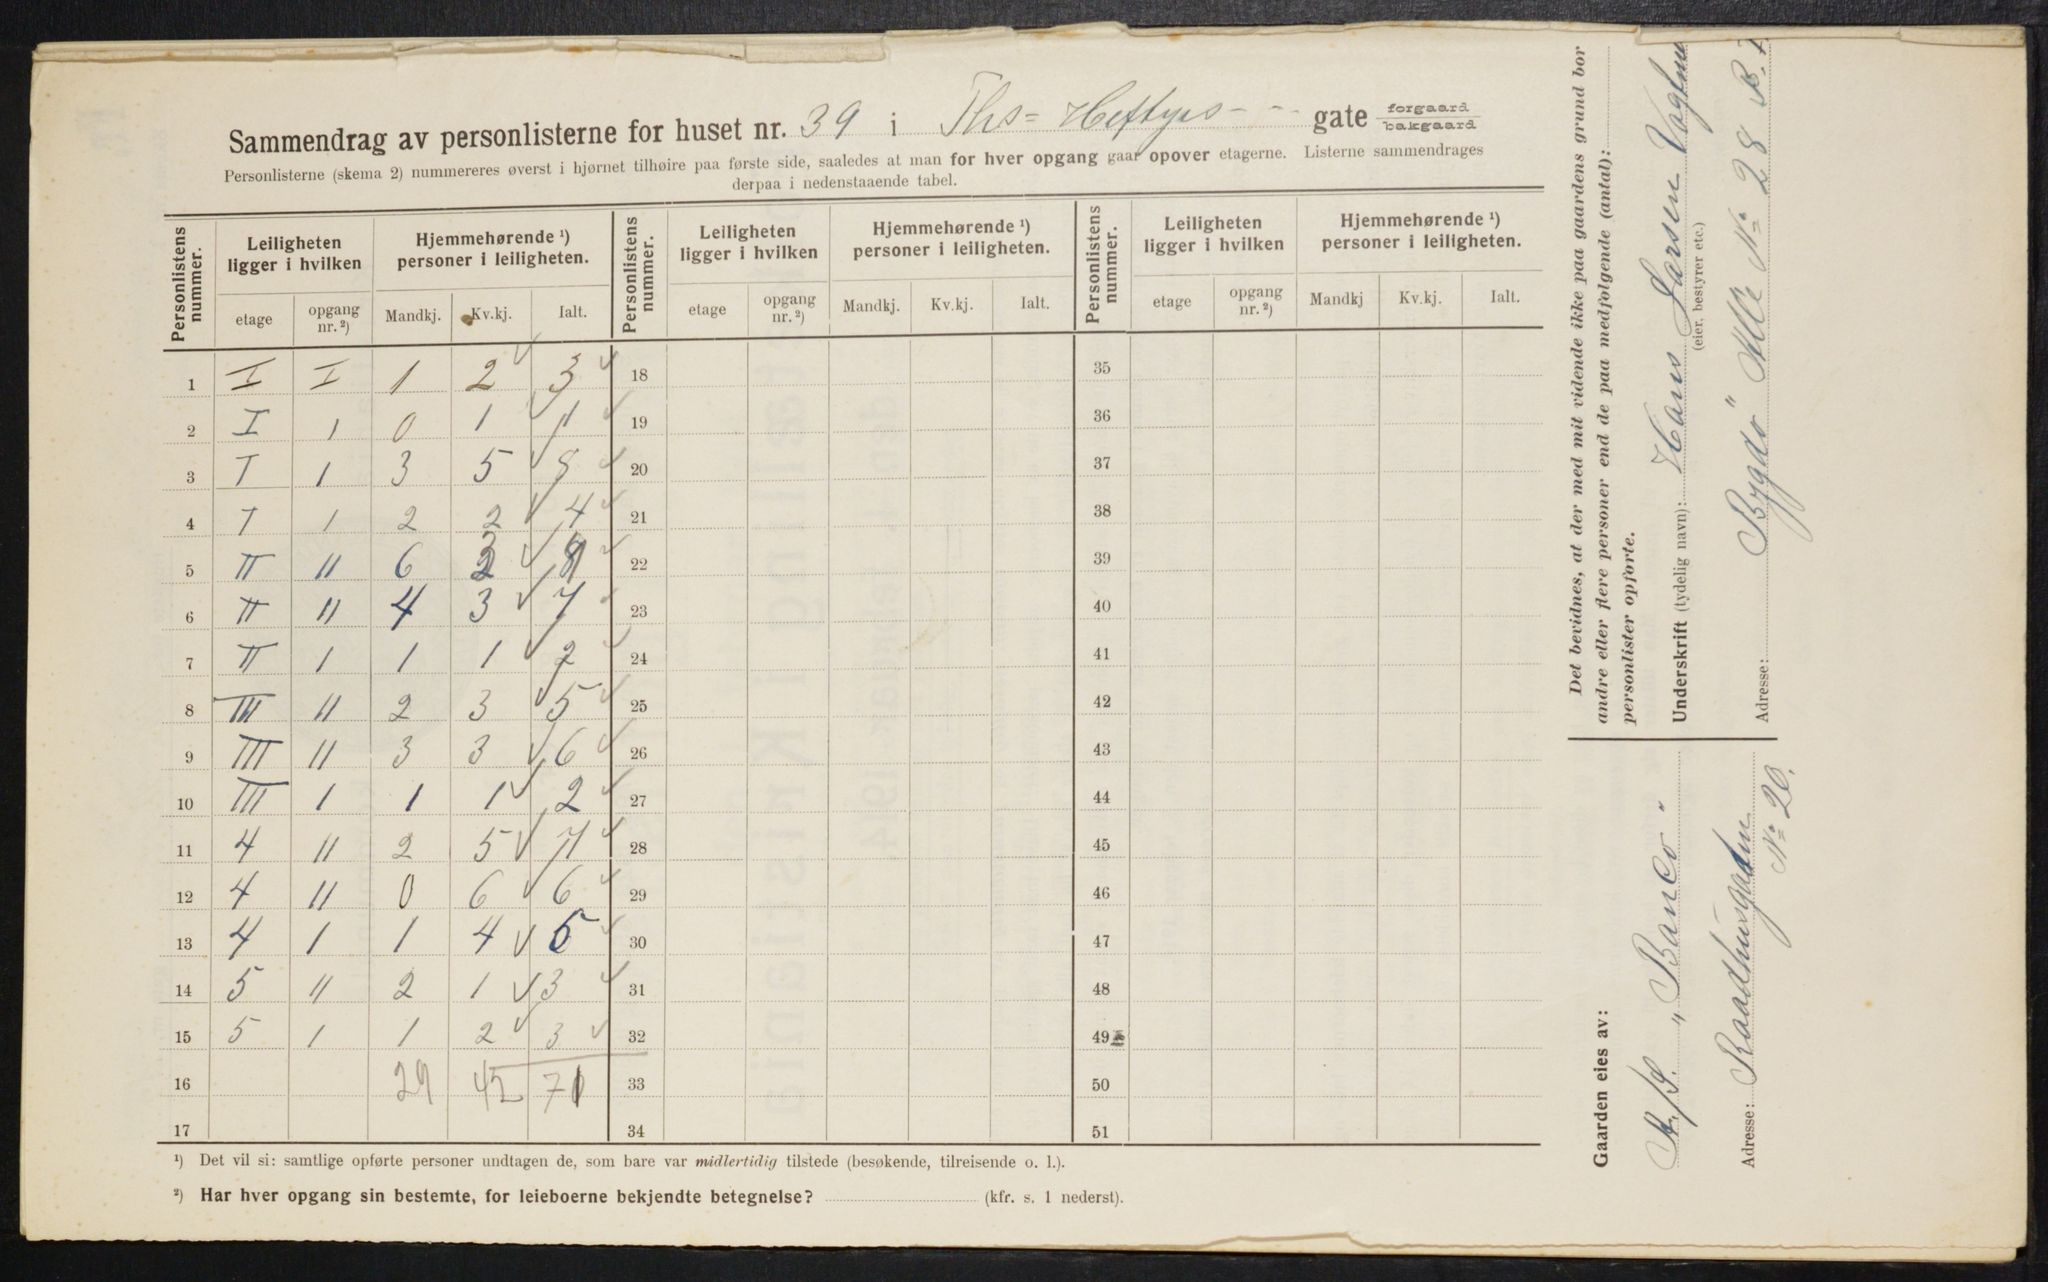 Sammendrag av personlisterne for huset nr. 39 i Ths= Heftyes - - - gate forgaard bakgaard
Personlisterne (skema 2) nummereres øverst i hjørnet tilhøire paa første side, saaledes at man for hver opgang gaar opover etagerne. Listerne sammendrages
derpaa i nedenstaaende tabel.
Personlistens nummer. Leiligheten ligger i hvilken Hjemmehørende ¹) personer i leiligheten. Personlistens nummer. Leiligheten ligger i hvilken Hjemmehørende ¹) personer i leiligheten. Personlistens nummer. Leiligheten ligger i hvilken Hjemmehørende ¹) personer i leiligheten.
etage opgang nr.²) Mandkj. Kv.kj. Ialt. etage opgang nr.²) Mandkj. Kv.kj. Ialt. etage opgang nr.²) Mandkj Kv.kj. Ialt.
1 I I 1 2 3 18 35
2 I 1 0 1 1 19 36
3 I 1 3 5 8 20 37
4 I 1 2 2 4 21 38
5 II 11 6 3 9 22 39
6 II 11 4 3 7 23 40
7 II 1 1 1 2 24 41
8 III 11 2 3 5 25 42
9 III 11 3 3 6 26 43
10 III 1 1 1 2 27 44
11 4 11 2 5 7 28 45
12 4 11 0 6 6 29 46
13 4 1 1 4 5 30 47
14 5 11 2 1 3 31 48
15 5 1 1 2 3 32 49
16 29 42 71 33 50
17 34 51
¹) Det vil si: samtlige opførte personer undtagen de, som bare var midlertidig tilstede (besøkende, tilreisende o. l.).
²) Har hver opgang sin bestemte, for leieboerne bekjendte betegnelse? (kfr. s. 1 nederst).
Det bevidnes, at der med mit vidende ikke paa gaardens grund bor
andre eller flere personer end de paa medfølgende (antal):
personlister opførte.
Underskrift (tydelig navn): Hans Larsen
(eier, bestyrer etc.)
Adresse: Bygdö Allé No 28
Gaarden eies av:
A/S. "Banco"
Adresse: Raadhusgaden
No 20.